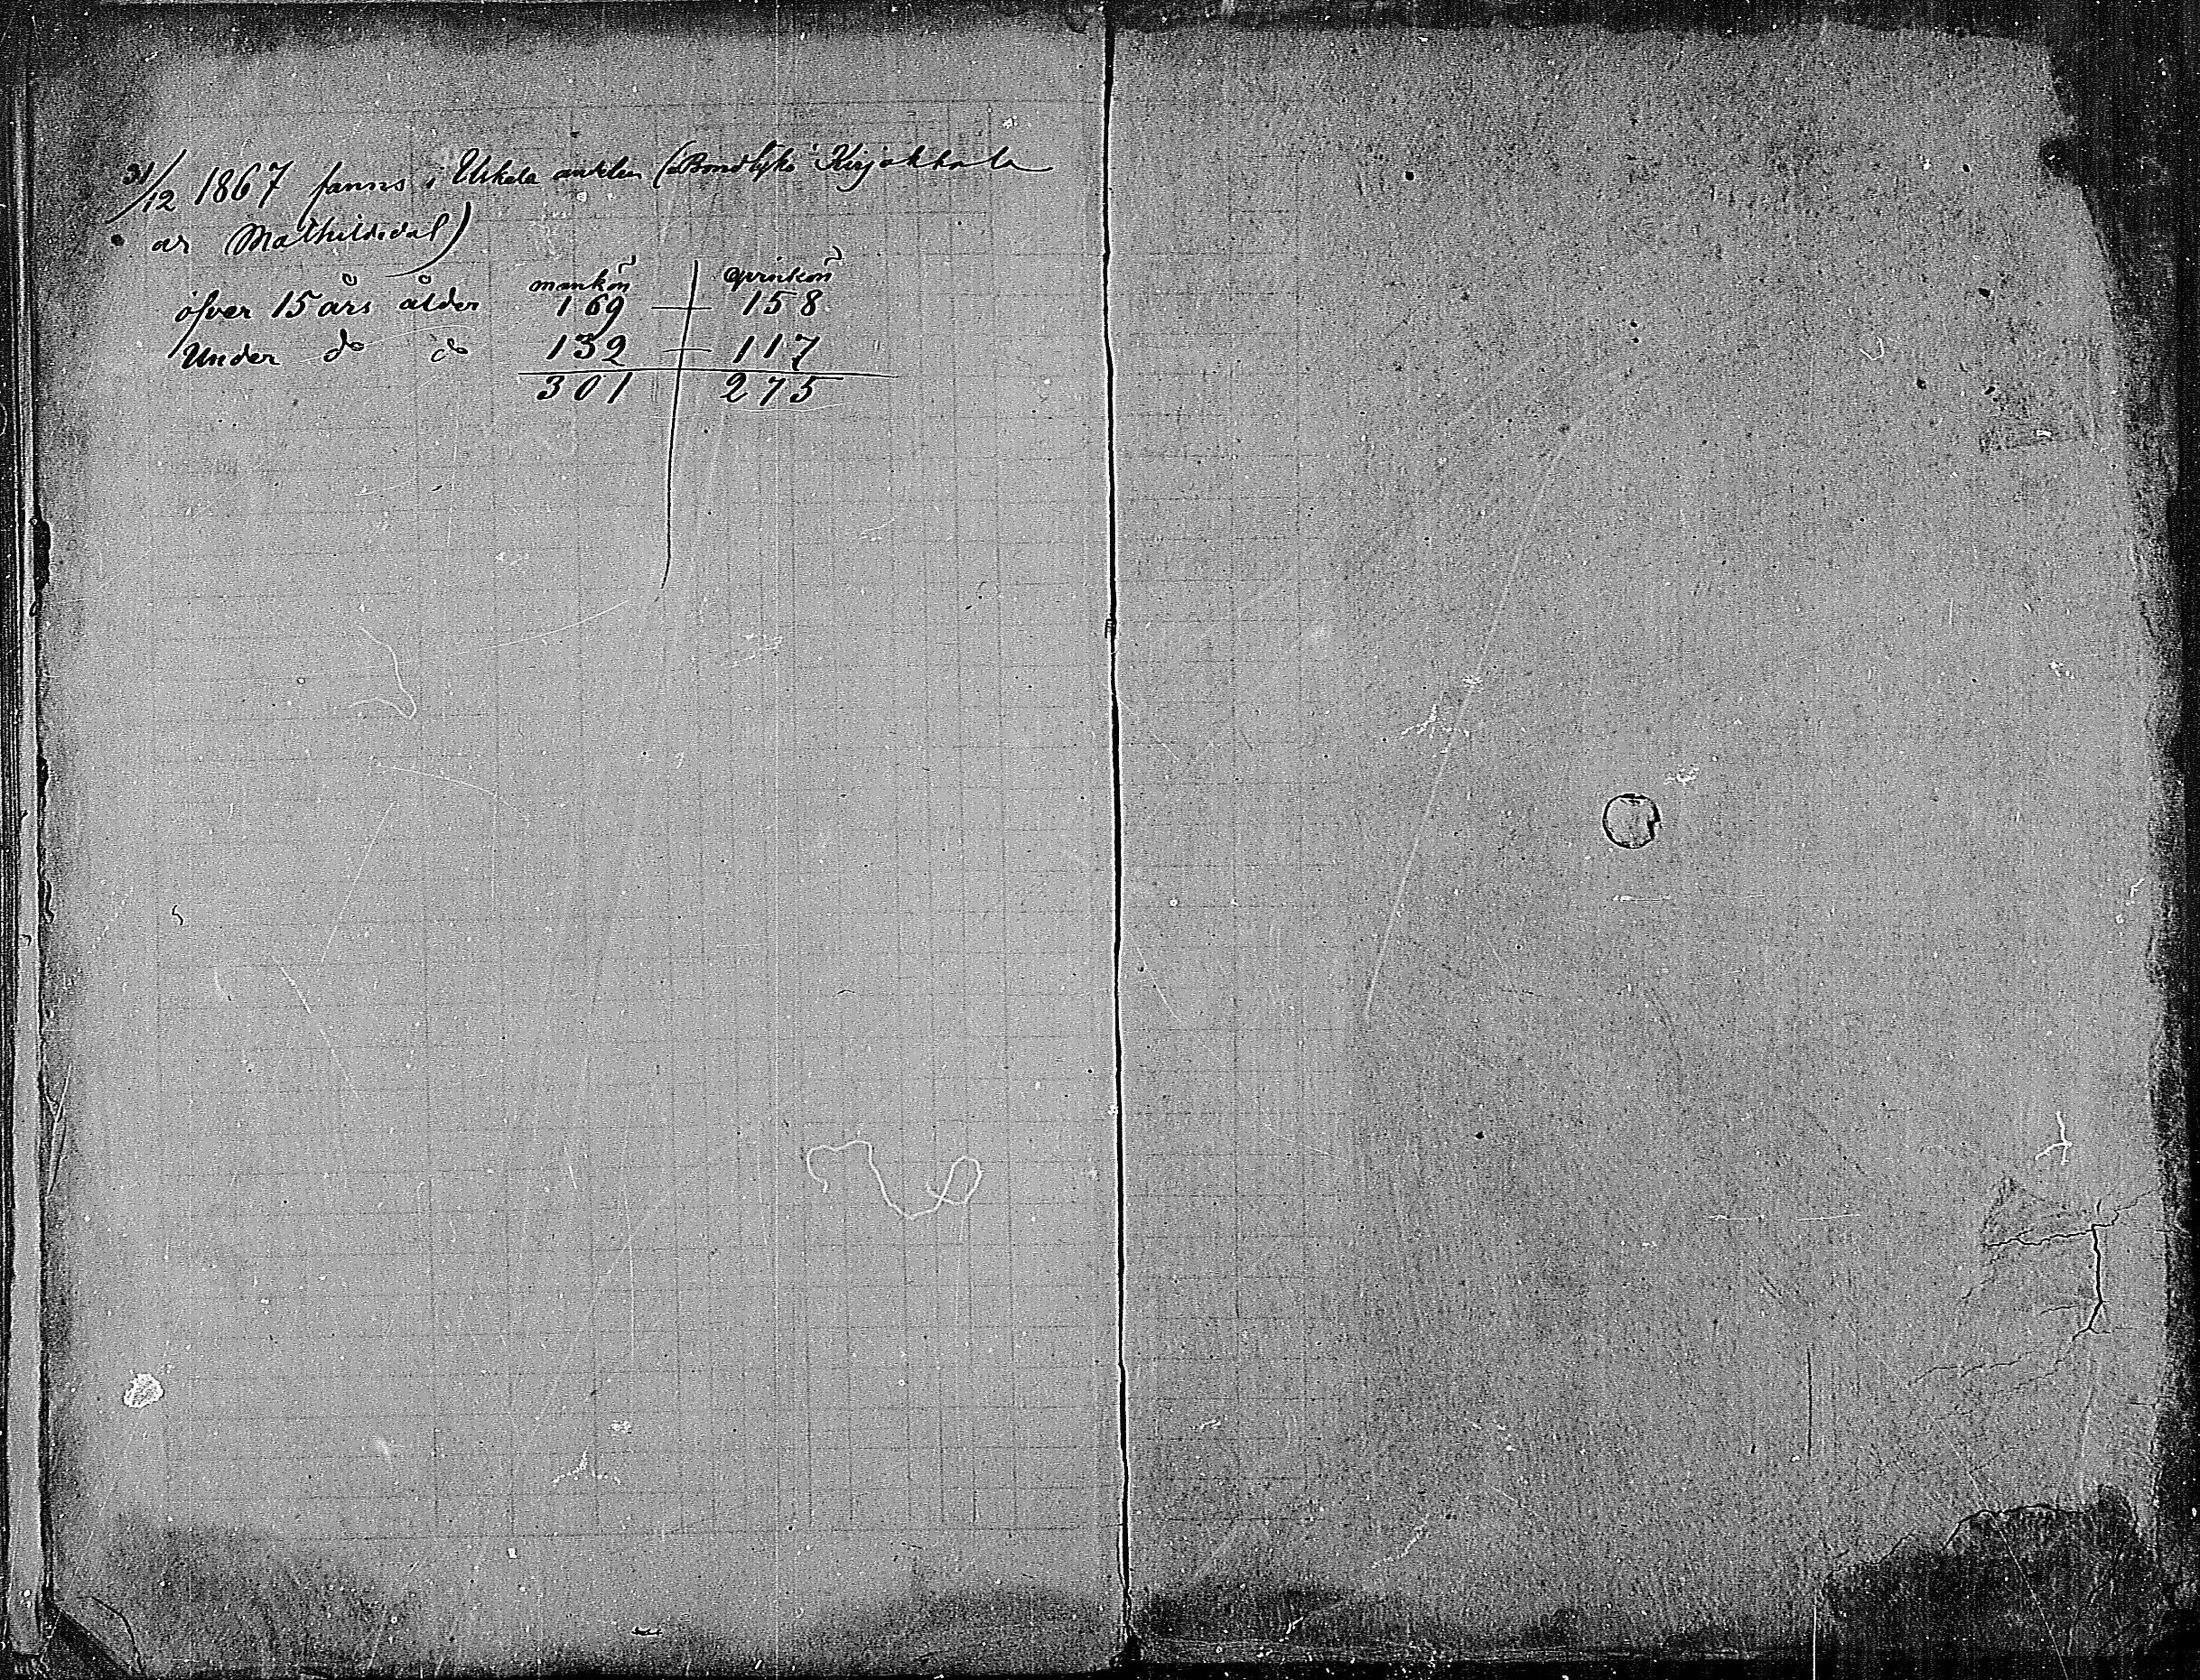 31/12 1867 fanns i Uskela andelen (Bondbyko Kirjakkala
ar Mathildedal)
mankön qvinkön
öfver 15 års ålder 169 — 158
Under do do 132 — 117
301 275